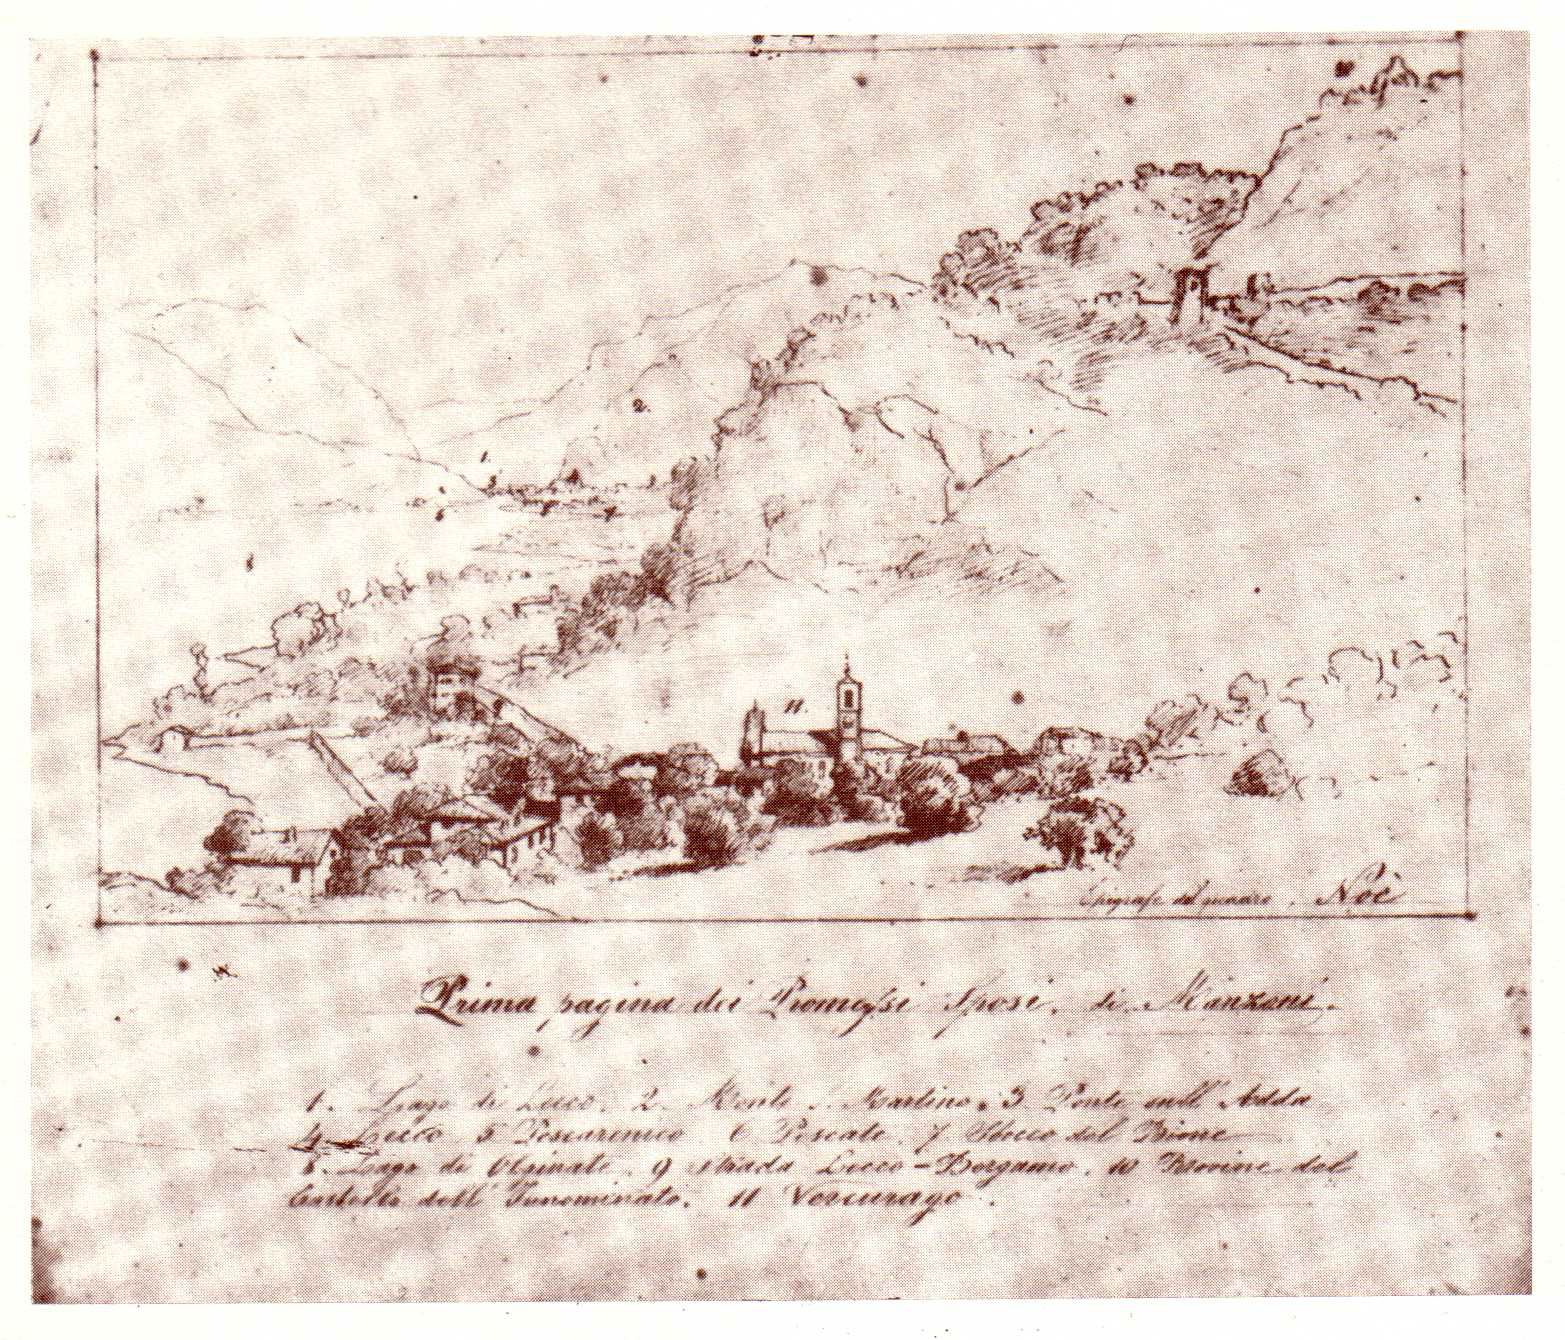 2.
1.
4
3
6
7
8
11.
Epigrafe del quadro. Noè
Prima pagina dei Promessi Sposi. di Manzoni.
1. Lago di Lecco. 2. Monte S. Martino. 3 Ponte sull' Adda
4. Lecco 5 Pescarenico 6 Pescate. 7. Sbocco del Bione
8. Lago di Olginate. 9 strada Lecco-Bergamo. 10 Rovine del
Castello dell' Innominato. 11 Vercurago.